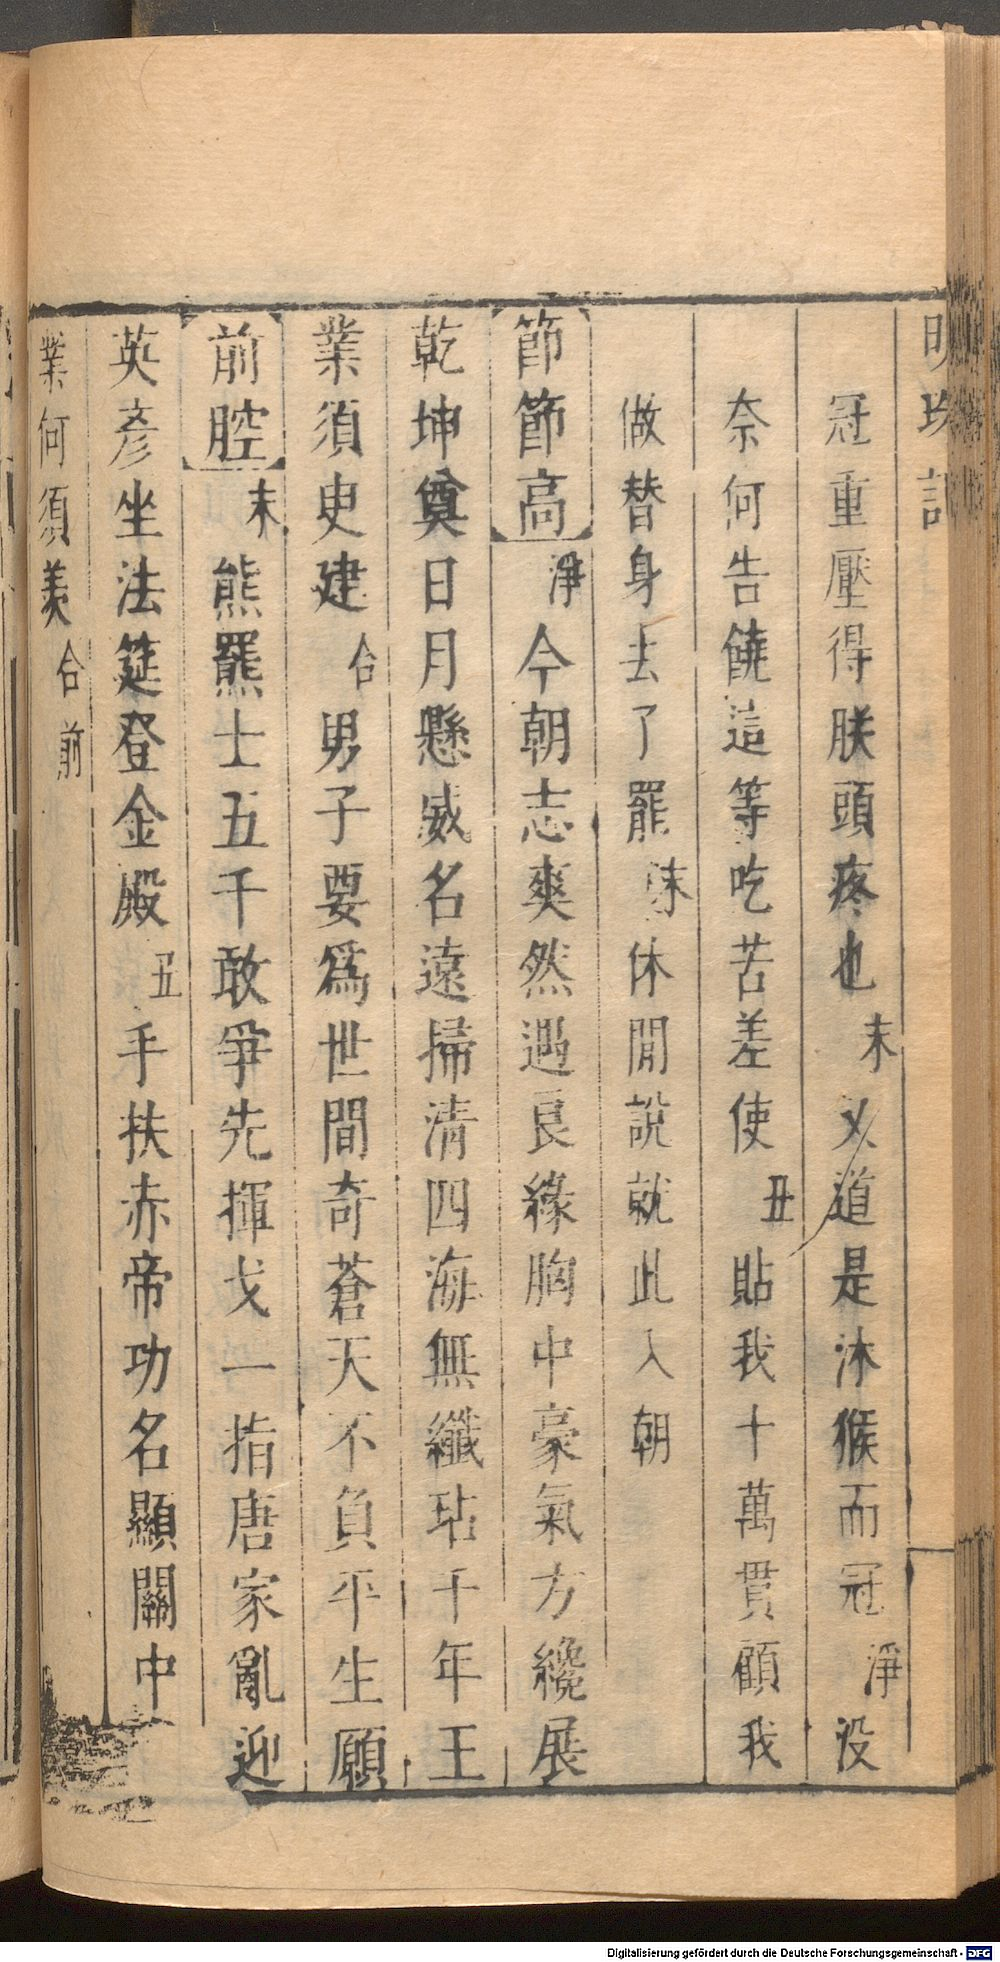 明珠記
冠重壓得朕頭疼也末又道是沐猴而冠淨没
奈何告饒這等吃苦差使丑貼我十萬貫顧我
做替身去了罷末休閒說就此入朝
節節高淨今朝志爽然遇良緣胸中豪氣方纔展
乾坤奠日月懸威名遠掃清四海無纖玷千年王
業須臾建合男子要爲世間奇蒼天不負平生願
前腔末熊羆士五千敢爭先揮戈一指唐家亂迎
英彥坐法筵登金殿丑手扶赤帝功名顯關中
業何須羨合前
Digitalisierung gefördert durch die Deutsche Forschungsgemeinschaft - DFG